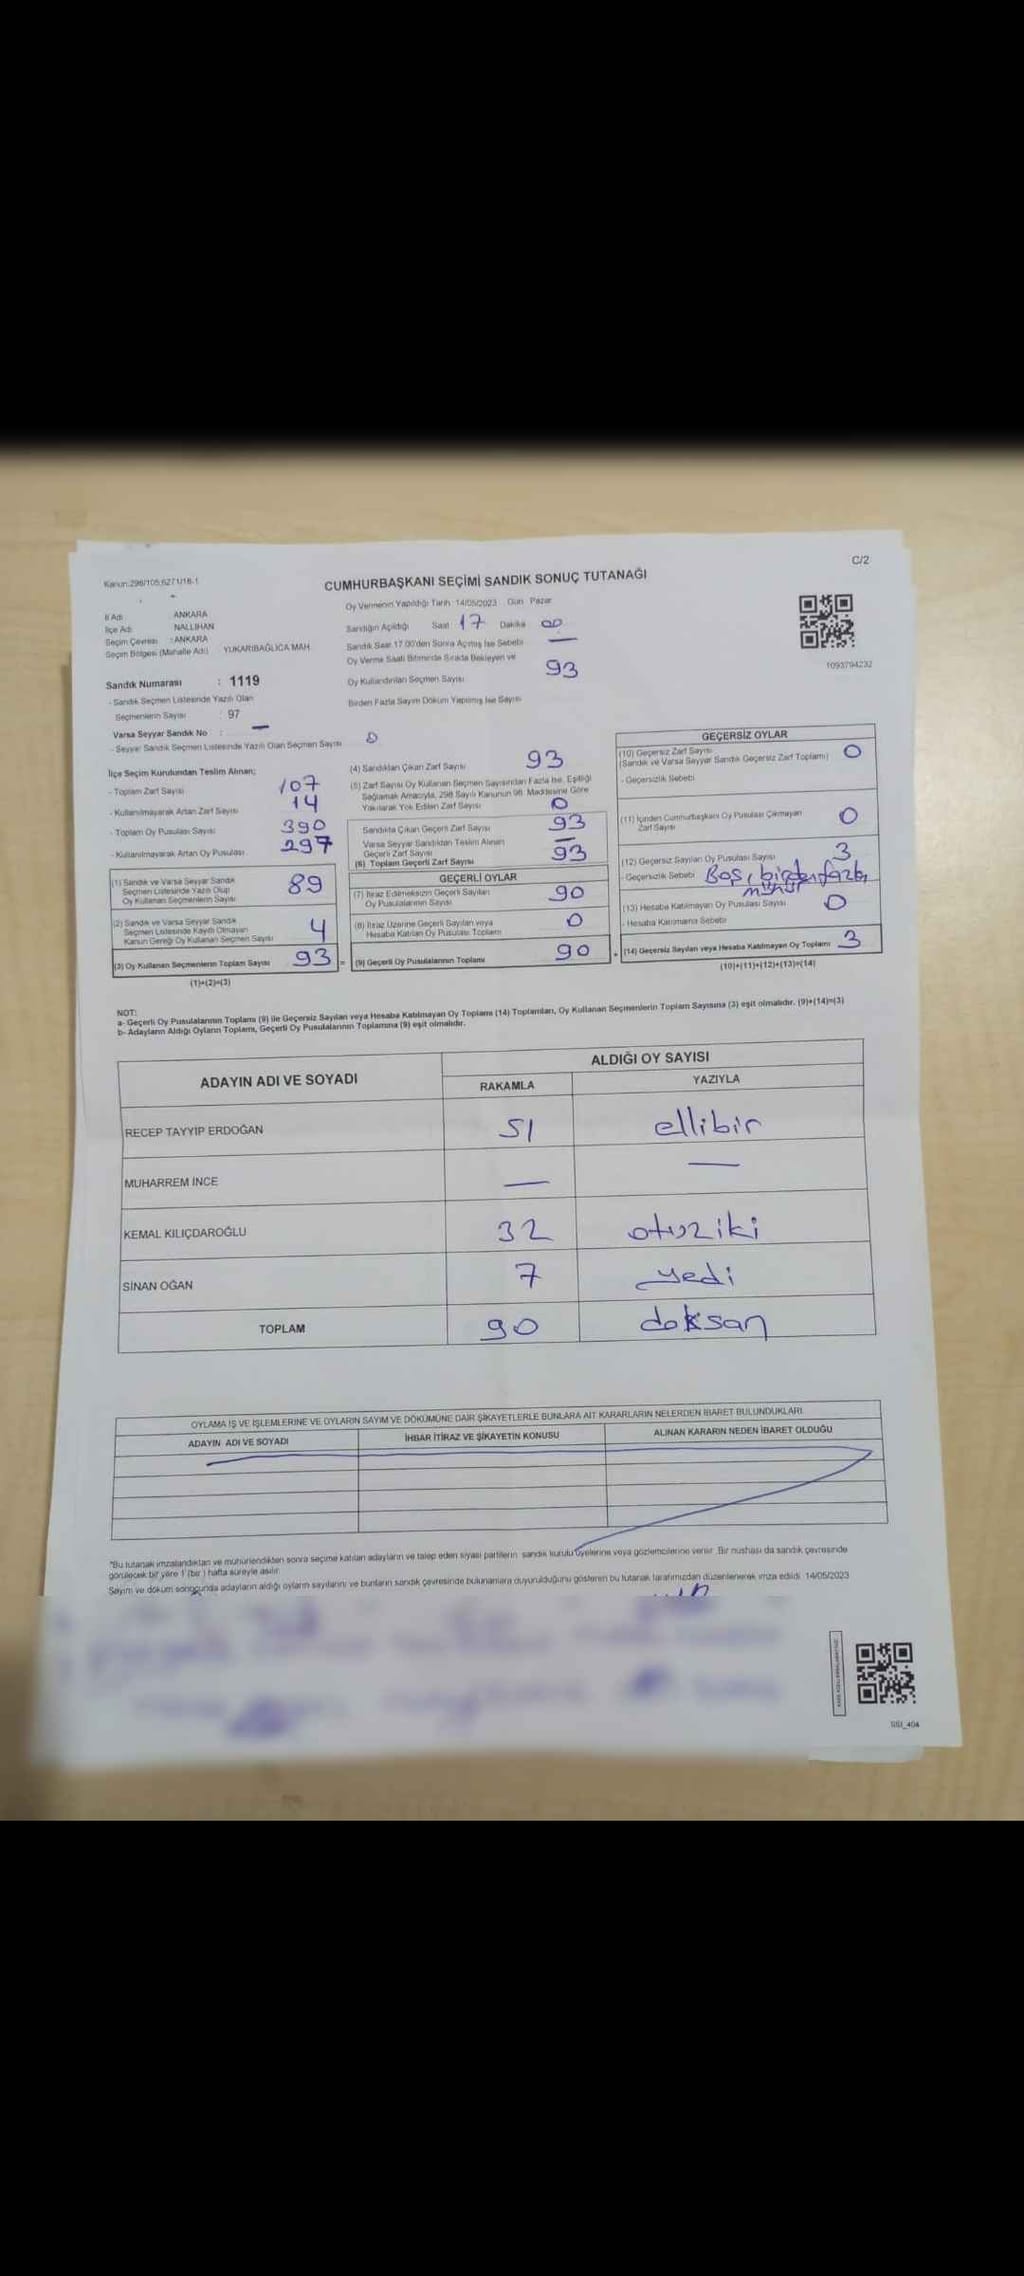 C/2
Kanun:298/105,6271/18-1
CUMHURBAŞKANI SEÇİMİ SANDIK SONUÇ TUTANAĞI
İl Adı : ANKARA
İlçe Adı : NALLIHAN
Seçim Çevresi : ANKARA
Seçim Bölgesi (Mahalle Adı) YUKARIBAĞLICA MAH
Sandık Numarası : 1119
- Sandık Seçmen Listesinde Yazılı Olan
Seçmenlerin Sayısı : 97
Varsa Seyyar Sandık No : —
- Seyyar Sandık Seçmen Listesinde Yazılı Olan Seçmen Sayısı 0
Oy Vermenin Yapıldığı Tarih 14/05/2023 Gün Pazar
Sandığın Açıldığı Saat 17 Dakika 00
Sandık Saat 17.00'den Sonra Açılmış İse Sebebi —
Oy Verme Saati Bitiminde Sırada Bekleyen ve
Oy Kullandırılan Seçmen Sayısı 93
Birden Fazla Sayım Döküm Yapılmış İse Sayısı
1093794232
İlçe Seçim Kurulundan Teslim Alınan;
- Toplam Zarf Sayısı 107
- Kullanılmayarak Artan Zarf Sayısı 14
- Toplam Oy Pusulası Sayısı 390
- Kullanılmayarak Artan Oy Pusulası 297
(1) Sandık ve Varsa Seyyar Sandık
Seçmen Listesinde Yazılı Olup
Oy Kullanan Seçmenlerin Sayısı 89
(2) Sandık ve Varsa Seyyar Sandık
Seçmen Listesinde Kayıtlı Olmayan
Kanun Gereği Oy Kullanan Seçmen Sayısı 4
(3) Oy Kullanan Seçmenlerin Toplam Sayısı 93 =
(1)+(2)=(3)
(4) Sandıktan Çıkan Zarf Sayısı 93
(5) Zarf Sayısı Oy Kullanan Seçmen Sayısından Fazla İse, Eşitliği
Sağlamak Amacıyla, 298 Sayılı Kanunun 98. Maddesine Göre
Yakılarak Yok Edilen Zarf Sayısı 0
Sandıkta Çıkan Geçerli Zarf Sayısı 93
Varsa Seyyar Sandıktan Teslim Alınan
Geçerli Zarf Sayısı —
(6) Toplam Geçerli Zarf Sayısı 93
GEÇERLİ OYLAR
(7) İtiraz Edilmeksizin Geçerli Sayılan
Oy Pusulalarının Sayısı 90
(8) İtiraz Üzerine Geçerli Sayılan veya
Hesaba Katılan Oy Pusulası Toplamı 0
(9) Geçerli Oy Pusulalarının Toplamı 90 +
GEÇERSİZ OYLAR
(10) Geçersiz Zarf Sayısı
(Sandık ve Varsa Seyyar Sandık Geçersiz Zarf Toplamı) 0
- Geçersizlik Sebebi
(11) İçinden Cumhurbaşkanı Oy Pusulası Çıkmayan
Zarf Sayısı 0
(12) Geçersiz Sayılan Oy Pusulası Sayısı 3
- Geçersizlik Sebebi Boş, birden fazla
mühür
(13) Hesaba Katılmayan Oy Pusulası Sayısı 0
- Hesaba Katılmama Sebebi
(14) Geçersiz Sayılan veya Hesaba Katılmayan Oy Toplamı 3
(10)+(11)+(12)+(13)=(14)
NOT:
a- Geçerli Oy Pusulalarının Toplamı (9) ile Geçersiz Sayılan veya Hesaba Katılmayan Oy Toplamı (14) Toplamları, Oy Kullanan Seçmenlerin Toplam Sayısına (3) eşit olmalıdır. (9)+(14)=(3)
b- Adayların Aldığı Oyların Toplamı, Geçerli Oy Pusulalarının Toplamına (9) eşit olmalıdır.
ADAYIN ADI VE SOYADI ALDIĞI OY SAYISI
RAKAMLA YAZIYLA
RECEP TAYYİP ERDOĞAN 51 ellibir
MUHARREM İNCE — —
KEMAL KILIÇDAROĞLU 32 otuziki
SİNAN OĞAN 7 yedi
TOPLAM 90 doksan
OYLAMA İŞ VE İŞLEMLERİNE VE OYLARIN SAYIM VE DÖKÜMÜNE DAİR ŞİKAYETLERLE BUNLARA AİT KARARLARIN NELERDEN İBARET BULUNDUKLARI
ADAYIN ADI VE SOYADI İHBAR İTİRAZ VE ŞİKAYETİN KONUSU ALINAN KARARIN NEDEN İBARET OLDUĞU
*Bu tutanak imzalandıktan ve mühürlendikten sonra seçime katılan adayların ve talep eden siyasi partilerin sandık kurulu üyelerine veya gözlemcilerine verilir. Bir nüshası da sandık çevresinde
görülecek bir yere 1 (bir) hafta süreyle asılır.
Sayım ve döküm sonucunda adayların aldığı oyların sayılarını ve bunların sandık çevresinde bulunanlara duyurulduğunu gösteren bu tutanak tarafımızdan düzenlenerek imza edildi. 14/05/2023